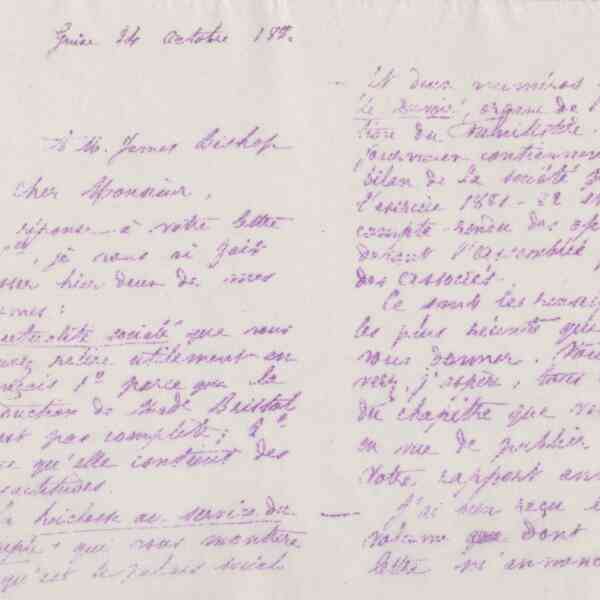 Guise 24 octobre 188
à M. James Bishop
Cher Monsieur,
réponse à votre lettre
je vous ai fait
sser hier deux de mes
mes :
société que vous
relire utilement en
nçais 1° parce que la
duction de Bristol
est pas complète ; 2°
ce qu'elle contient des
actitudes.
la au service du
peuple - qui vous montrera
qu'est le palais social
Et deux numéros
le Devoir, organe de
Familistère.
contiennent
bilan de la société
l'exercice 1881-82 et
compte-rendu des
devant l'assemblée
des associés.
Ce sont les
les plus récents que
vous donner. Vous
verrez, j'espère, tous
du chapitre que
en vue de publier
votre rapport
J'ai bien reçu
volume dont
lettre m'annonce